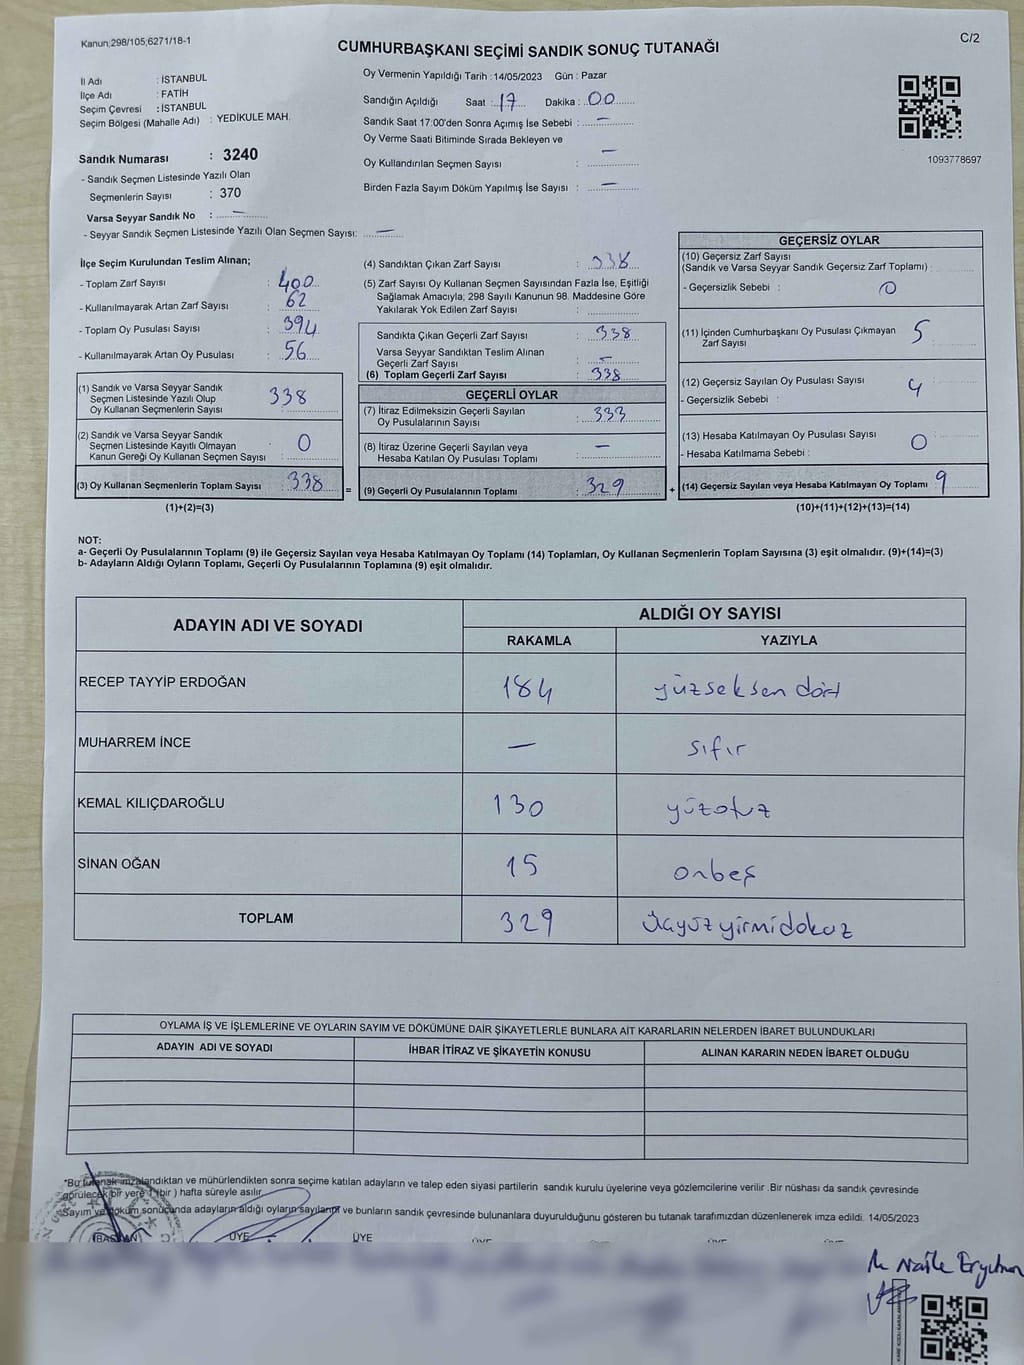 Kanun;298/105;6271/18-1
C/2
CUMHURBAŞKANI SEÇİMİ SANDIK SONUÇ TUTANAĞI
İl Adı : İSTANBUL
İlçe Adı : FATİH
Seçim Çevresi : İSTANBUL
Seçim Bölgesi (Mahalle Adı) : YEDİKULE MAH.
Sandık Numarası : 3240
- Sandık Seçmen Listesinde Yazılı Olan
Seçmenlerin Sayısı : 370
Varsa Seyyar Sandık No : —
- Seyyar Sandık Seçmen Listesinde Yazılı Olan Seçmen Sayısı: —
Oy Vermenin Yapıldığı Tarih : 14/05/2023 Gün : Pazar
Sandığın Açıldığı Saat : 17 Dakika : 00
Sandık Saat 17:00'den Sonra Açımış İse Sebebi : —
Oy Verme Saati Bitiminde Sırada Bekleyen ve
Oy Kullandırılan Seçmen Sayısı : —
Birden Fazla Sayım Döküm Yapılmış İse Sayısı : —
1093778697
İlçe Seçim Kurulundan Teslim Alınan;
- Toplam Zarf Sayısı : 400
- Kullanılmayarak Artan Zarf Sayısı : 62
- Toplam Oy Pusulası Sayısı : 394
- Kullanılmayarak Artan Oy Pusulası : 56
(1) Sandık ve Varsa Seyyar Sandık
Seçmen Listesinde Yazılı Olup
Oy Kullanan Seçmenlerin Sayısı : 338
(2) Sandık ve Varsa Seyyar Sandık
Seçmen Listesinde Kayıtlı Olmayan
Kanun Gereği Oy Kullanan Seçmen Sayısı : 0
(3) Oy Kullanan Seçmenlerin Toplam Sayısı : 338
(1)+(2)=(3)
(4) Sandıktan Çıkan Zarf Sayısı : 338
(5) Zarf Sayısı Oy Kullanan Seçmen Sayısından Fazla İse, Eşitliği
Sağlamak Amacıyla; 298 Sayılı Kanunun 98. Maddesine Göre
Yakılarak Yok Edilen Zarf Sayısı :
Sandıkta Çıkan Geçerli Zarf Sayısı : 338
Varsa Seyyar Sandıktan Teslim Alınan
Geçerli Zarf Sayısı : —
(6) Toplam Geçerli Zarf Sayısı : 338
GEÇERLİ OYLAR
(7) İtiraz Edilmeksizin Geçerli Sayılan
Oy Pusulalarının Sayısı : 333
(8) İtiraz Üzerine Geçerli Sayılan veya
Hesaba Katılan Oy Pusulası Toplamı : —
= (9) Geçerli Oy Pusulalarının Toplamı : 329
GEÇERSİZ OYLAR
(10) Geçersiz Zarf Sayısı
(Sandık ve Varsa Seyyar Sandık Geçersiz Zarf Toplamı) :
- Geçersizlik Sebebi : 0
(11) İçinden Cumhurbaşkanı Oy Pusulası Çıkmayan
Zarf Sayısı 5
(12) Geçersiz Sayılan Oy Pusulası Sayısı 4
- Geçersizlik Sebebi :
(13) Hesaba Katılmayan Oy Pusulası Sayısı 0
- Hesaba Katılmama Sebebi :
+ (14) Geçersiz Sayılan veya Hesaba Katılmayan Oy Toplamı 9
(10)+(11)+(12)+(13)=(14)
NOT:
a- Geçerli Oy Pusulalarının Toplamı (9) ile Geçersiz Sayılan veya Hesaba Katılmayan Oy Toplamı (14) Toplamları, Oy Kullanan Seçmenlerin Toplam Sayısına (3) eşit olmalıdır. (9)+(14)=(3)
b- Adayların Aldığı Oyların Toplamı, Geçerli Oy Pusulalarının Toplamına (9) eşit olmalıdır.
ADAYIN ADI VE SOYADI
ALDIĞI OY SAYISI
RAKAMLA YAZIYLA
RECEP TAYYİP ERDOĞAN 184 yüzseksen dört
MUHARREM İNCE — sıfır
KEMAL KILIÇDAROĞLU 130 yüzotuz
SİNAN OĞAN 15 onbeş
TOPLAM 329 üçyüzyirmidokuz
OYLAMA İŞ VE İŞLEMLERİNE VE OYLARIN SAYIM VE DÖKÜMÜNE DAİR ŞİKAYETLERLE BUNLARA AİT KARARLARIN NELERDEN İBARET BULUNDUKLARI
ADAYIN ADI VE SOYADI İHBAR İTİRAZ VE ŞİKAYETİN KONUSU ALINAN KARARIN NEDEN İBARET OLDUĞU
"Bu tutanak imzalandıktan ve mühürlendikten sonra seçime katılan adayların ve talep eden siyasi partilerin sandık kurulu üyelerine veya gözlemcilerine verilir .Bir nüshası da sandık çevresinde
görülecek bir yere 1 (bir ) hafta süreyle asılır.
Sayım ve döküm sonucunda adayların aldığı oyların sayılarını ve bunların sandık çevresinde bulunanlara duyurulduğunu gösteren bu tutanak tarafımızdan düzenlenerek imza edildi. 14/05/2023
BAŞKAN ÜYE ÜYE ÜYE ÜYE ÜYE
Naile